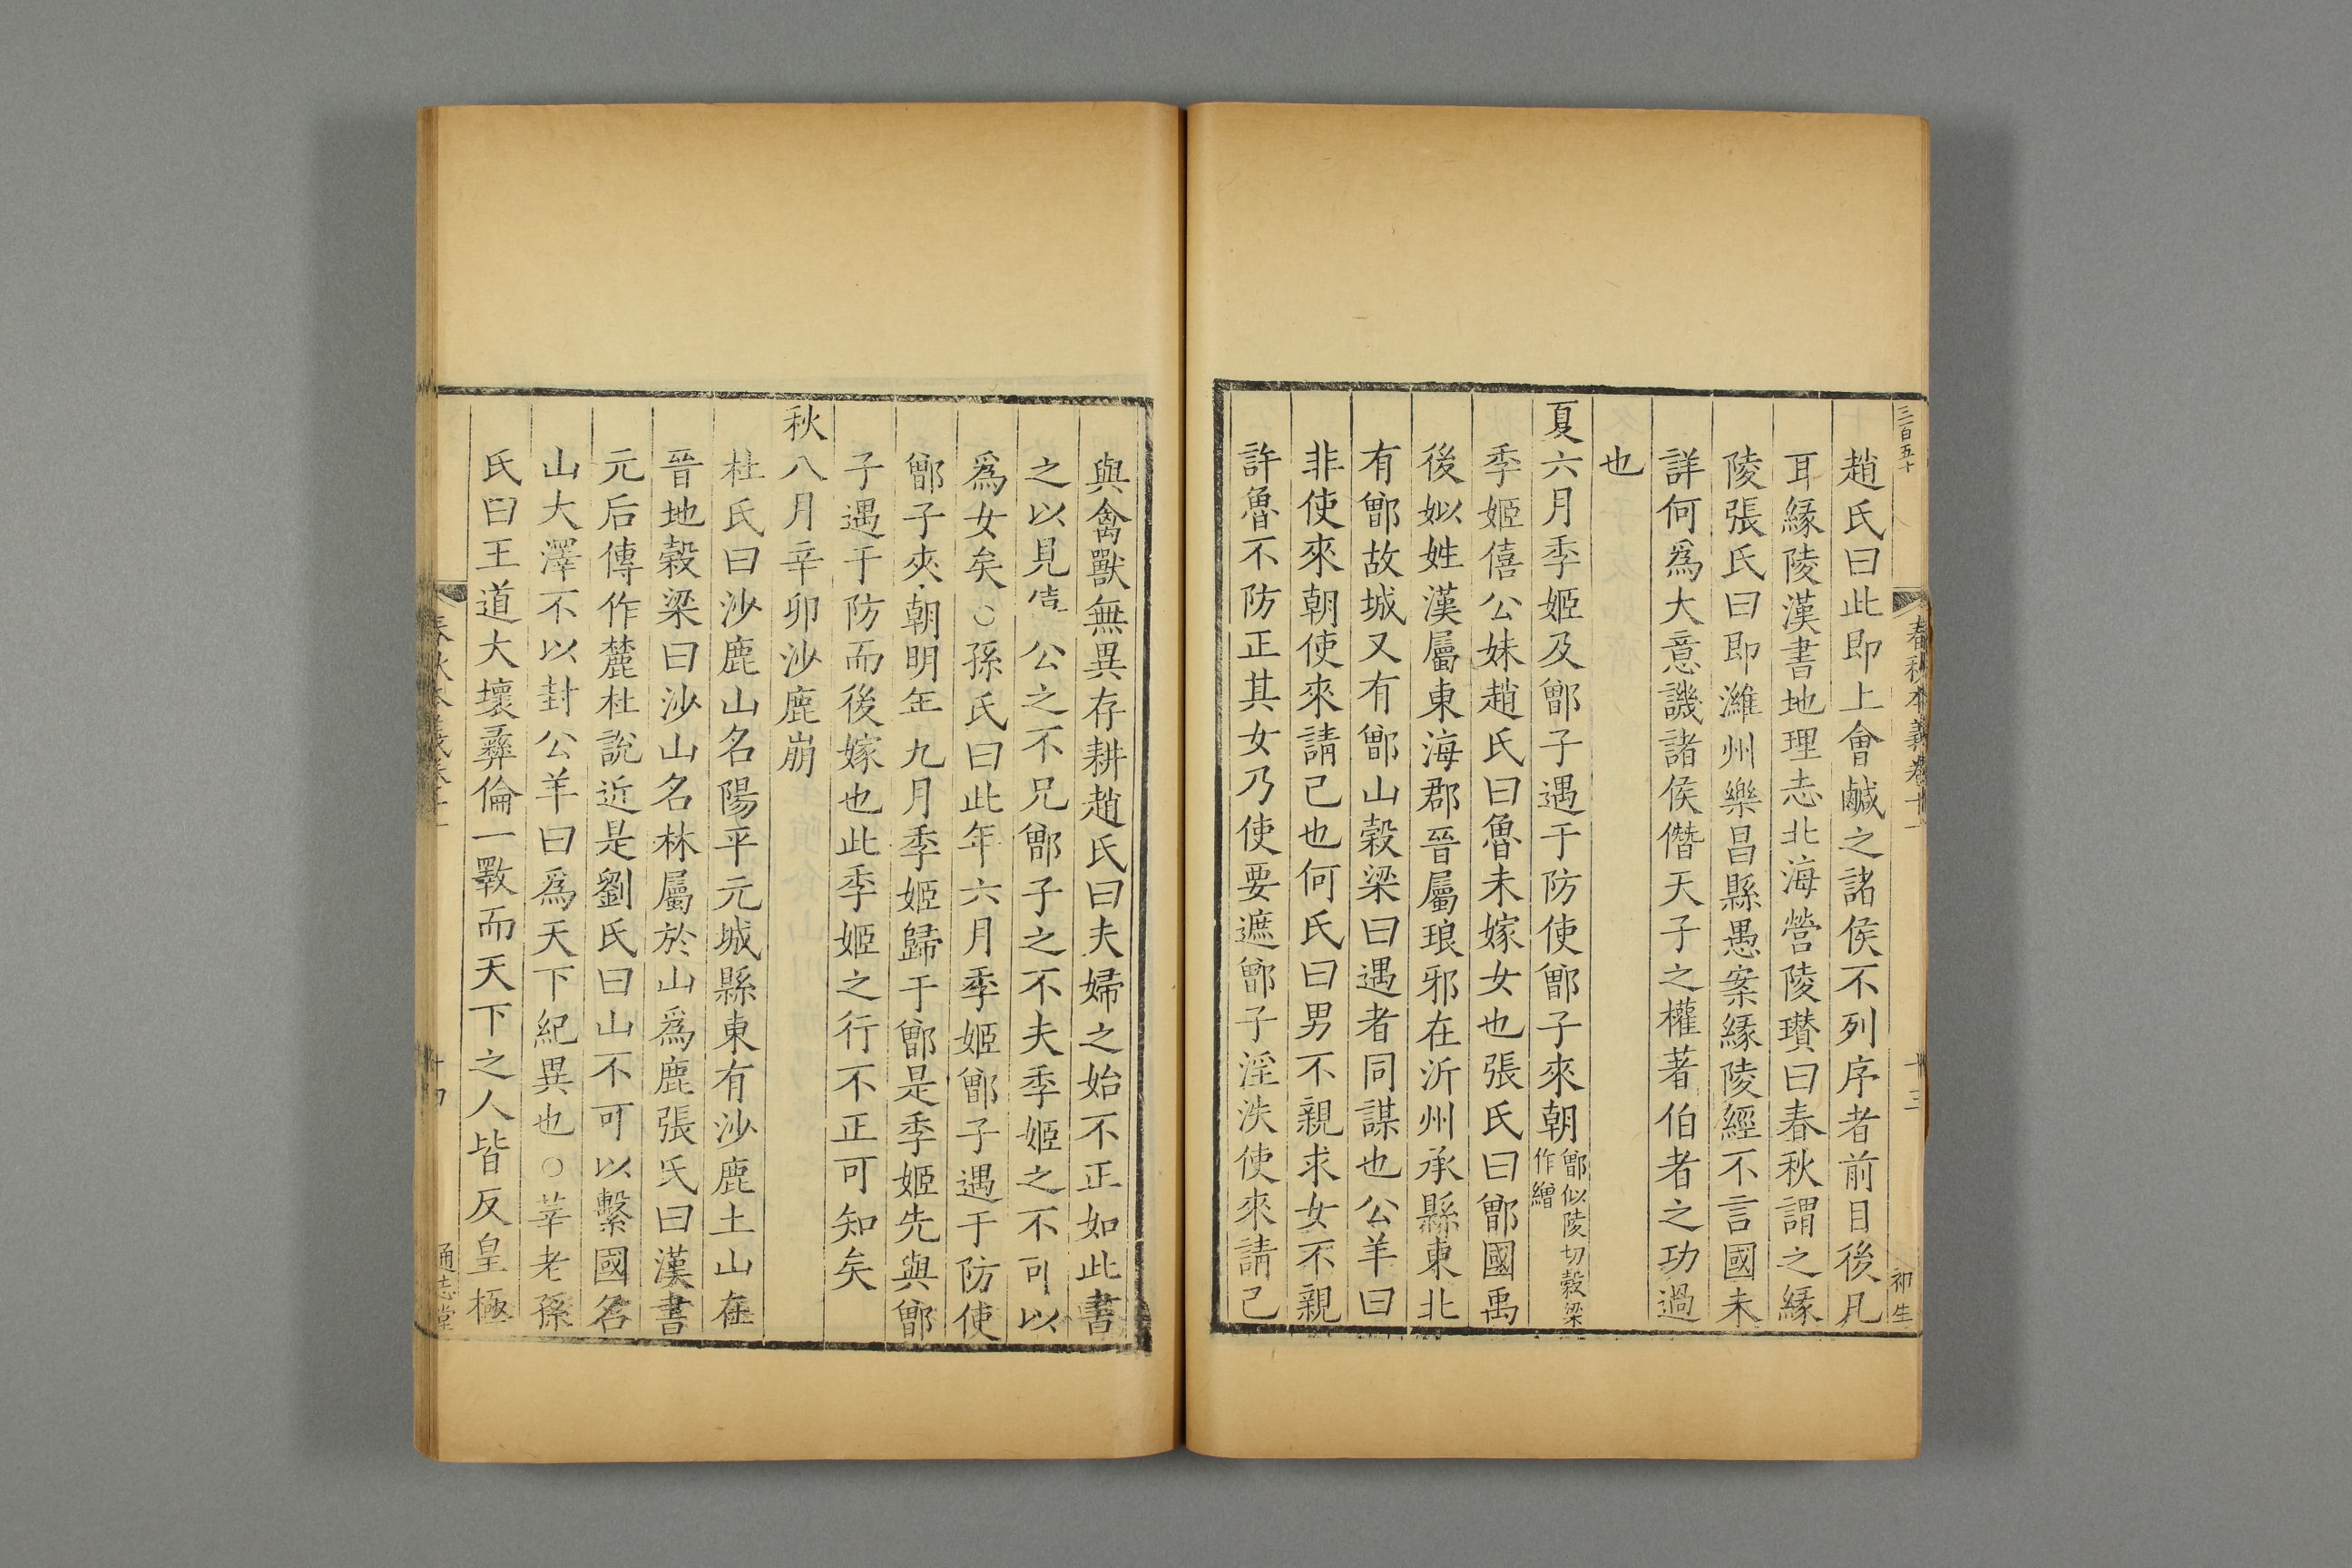 三百五十
春秋本義卷十一
十三
初生
趙氏曰此即上會鹹之諸侯不列序者前目後凡
耳緣陵漢書地理志北海營陵瓚曰春秋謂之緣
陵張氏曰即濰州樂昌縣愚案緣陵經不言國未
詳何爲大意譏諸侯僭天子之權著伯者之功過
也
夏六月季姬及鄫子遇于防使鄫子來朝鄫似陵切穀梁作繒
季姬僖公妹趙氏曰魯未嫁女也張氏曰鄫國禹
後姒姓漢屬東海郡晉屬琅邪在沂州承縣東北
有鄫故城又有鄫山穀梁曰遇者同謀也公羊曰
非使來朝使來請己也何氏曰男不親求女不親
許魯不防正其女乃使要遮鄫子淫泆使來請己
與禽獸無異存耕趙氏曰夫婦之始不正如此書
之以見僖公之不兄鄫子之不夫季姬之不可以
爲女矣○孫氏曰此年六月季姬鄫子遇于防使
鄫子來朝明年九月季姬歸于鄫是季姬先與鄫
子遇于防而後嫁也此季姬之行不正可知矣
秋八月辛卯沙鹿崩
杜氏曰沙鹿山名陽平元城縣東有沙鹿土山在
晉地穀梁曰沙山名林屬於山爲鹿張氏曰漢書
元后傳作麓杜說近是劉氏曰山不可以繫國名
山大澤不以封公羊曰爲天下紀異也○莘老孫
氏曰王道大壞彞倫一斁而天下之人皆反皇極
春秋本義卷十一
十四
通志堂